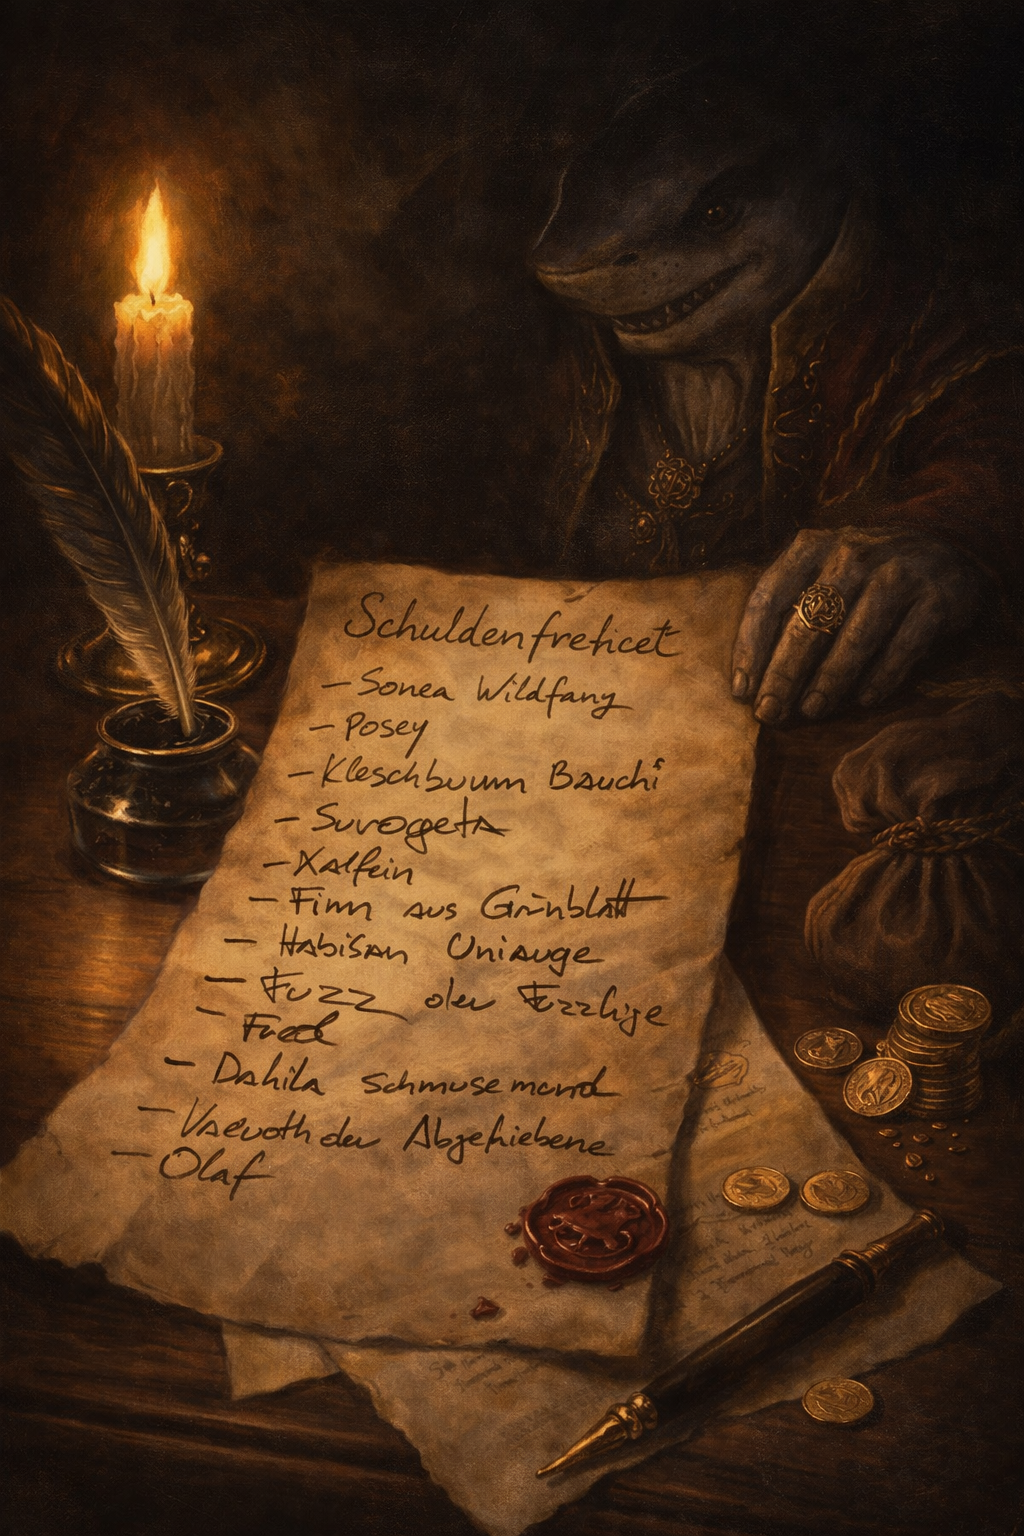 Schuldenfreticet
- Sonea Wildfang
- Posey
- Kleschbuum Bauchi
- Surogeta
- Xalfein
- Finn aus Grünblatt
- Habisan Uniauge
- Fuzz der Fuzzlige
- Fred
- Dahila Schmusemund
- Varvoth der Abgefriebene
- Olaf